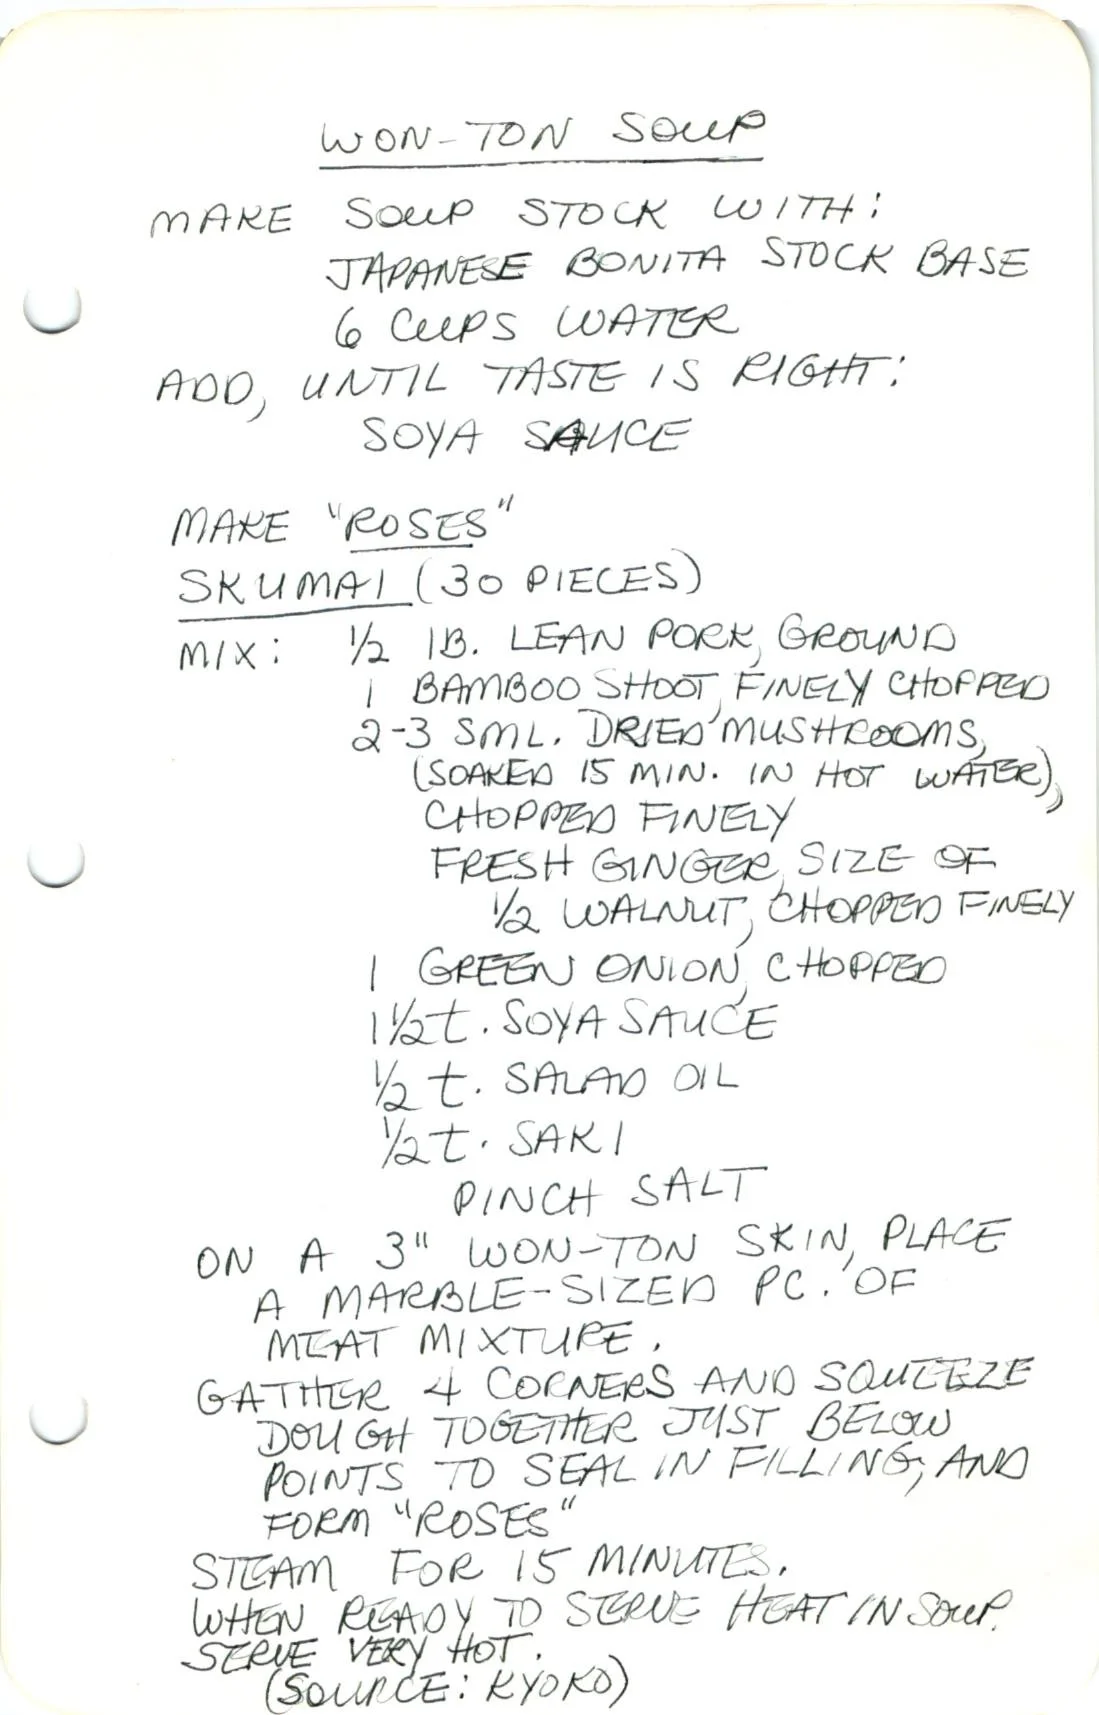 WON-TON SOUP
MAKE SOUP STOCK WITH:
JAPANESE BONITA STOCK BASE
6 CUPS WATER
ADD, UNTIL TASTE IS RIGHT:
SOYA SAUCE
MAKE "ROSES"
SKUMAI (30 PIECES)
MIX: 1/2 lB. LEAN PORK, GROUND
1 BAMBOO SHOOT, FINELY CHOPPED
2-3 SML. DRIED MUSHROOMS,
(SOAKED 15 MIN. IN HOT WATER),
CHOPPED FINELY
FRESH GINGER, SIZE OF
1/2 WALNUT, CHOPPED FINELY
1 GREEN ONION, CHOPPED
1 1/2 t. SOYA SAUCE
1/2 t. SALAD OIL
1/2 t. SAKI
PINCH SALT
ON A 3" WON-TON SKIN, PLACE
A MARBLE-SIZED PC. OF
MEAT MIXTURE.
GATHER 4 CORNERS AND SQUEEZE
DOUGH TOGETHER JUST BELOW
POINTS TO SEAL IN FILLING, AND
FORM "ROSES"
STEAM FOR 15 MINUTES.
WHEN READY TO SERVE HEAT IN SOUP.
SERVE VERY HOT.
(SOURCE: KYOKO)